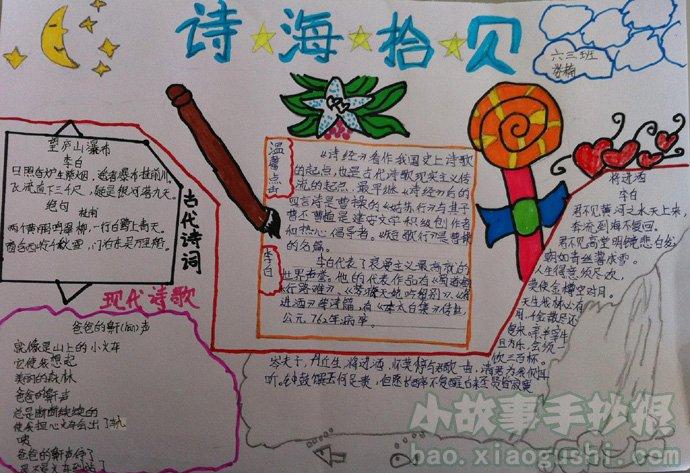 诗海拾贝
六三班
望庐山瀑布
李白
日照香炉生紫烟,遥看瀑布挂前川。
飞流直下三千尺,疑是银河落九天。
绝句
杜甫
两个黄鹂鸣翠柳,一行白鹭上青天。
窗含西岭千秋雪,门泊东吴万里船。
古代诗词
现代诗歌
爸爸的鼾(hān)声
就像是山上的小火车
它使我想起
美丽的森林
爸爸的鼾声
总是断断续续的
使我担心火车会出了轨
咦
爸爸的鼾声停了
是不是火车到站了
温馨点击
《诗经》看作我国史上诗歌
的起点,也是古代诗歌现实主义传
流的起点,最早继《诗经》后的
四言诗是曹操的
曹丕曹植是建安文学积极创作者
和热心倡导者。《短歌行》是曹操
的名篇。
李白
李白代表了浪漫主义最高教的
世界声誉。他的代表作品有《蜀道难》
《行路难》、《梦游天姥吟留别》、《将
进酒》等诗篇,有《李太白集》传世,
公元762年病卒
将进酒
李白
君不见黄河之水天上来,
奔流到海不复回。
君不见高堂明镜悲白发,
朝如青丝暮成雪。
人生得意须尽欢,
莫使金樽空对月。
天生我材必有
用,千金散尽还
复来。烹羊宰牛
且为乐,会须一
饮三百杯。
岑夫子,丹丘生,将进酒,杯莫停。与君歌一曲,请君为我倾耳
听。钟鼓馔玉何足贵,但愿长醉不复醒。古来圣贤皆寂寞
小故事手抄报
bao.xiaogushi.com